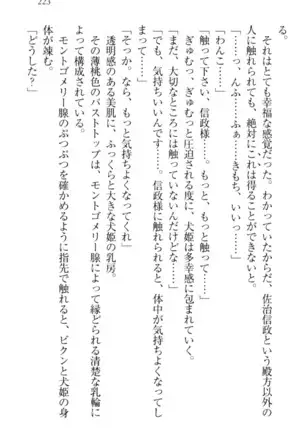 223
る。
それはとても幸福な感覚だった。わかっていたからだ、佐治信政という殿方以外の
人に触れられても、絶対にこれは得ることができないと。
「……っ、んふ、ふぁ……きもち、いいっ……」
「わんこ……」
「触って下さい、信政様……。もっと、もっと触って……」
ぎゅむっ、ぎゅむっと圧迫されるごとに、犬姫は多幸感に包まれていく。
「まだ、大切なところには触っていないんだけどな……」
「でも、気持ちいいんです……。信政様に触れられると、体中が気持ちよくなって」
「そっか。なら、もっと気持ちよくなってくれ」
透明感のある美肌に、ふっくらと大きな犬姫の乳房。
その薄桃色のバストトップは、モントゴメリー腺によって縁どられる清楚な乳輪に
よって構成されている。
モントゴメリー腺のぷつぷつを確かめるように指先で触れると、ピクンと犬姫の身
体が竦む。
「どうした？」